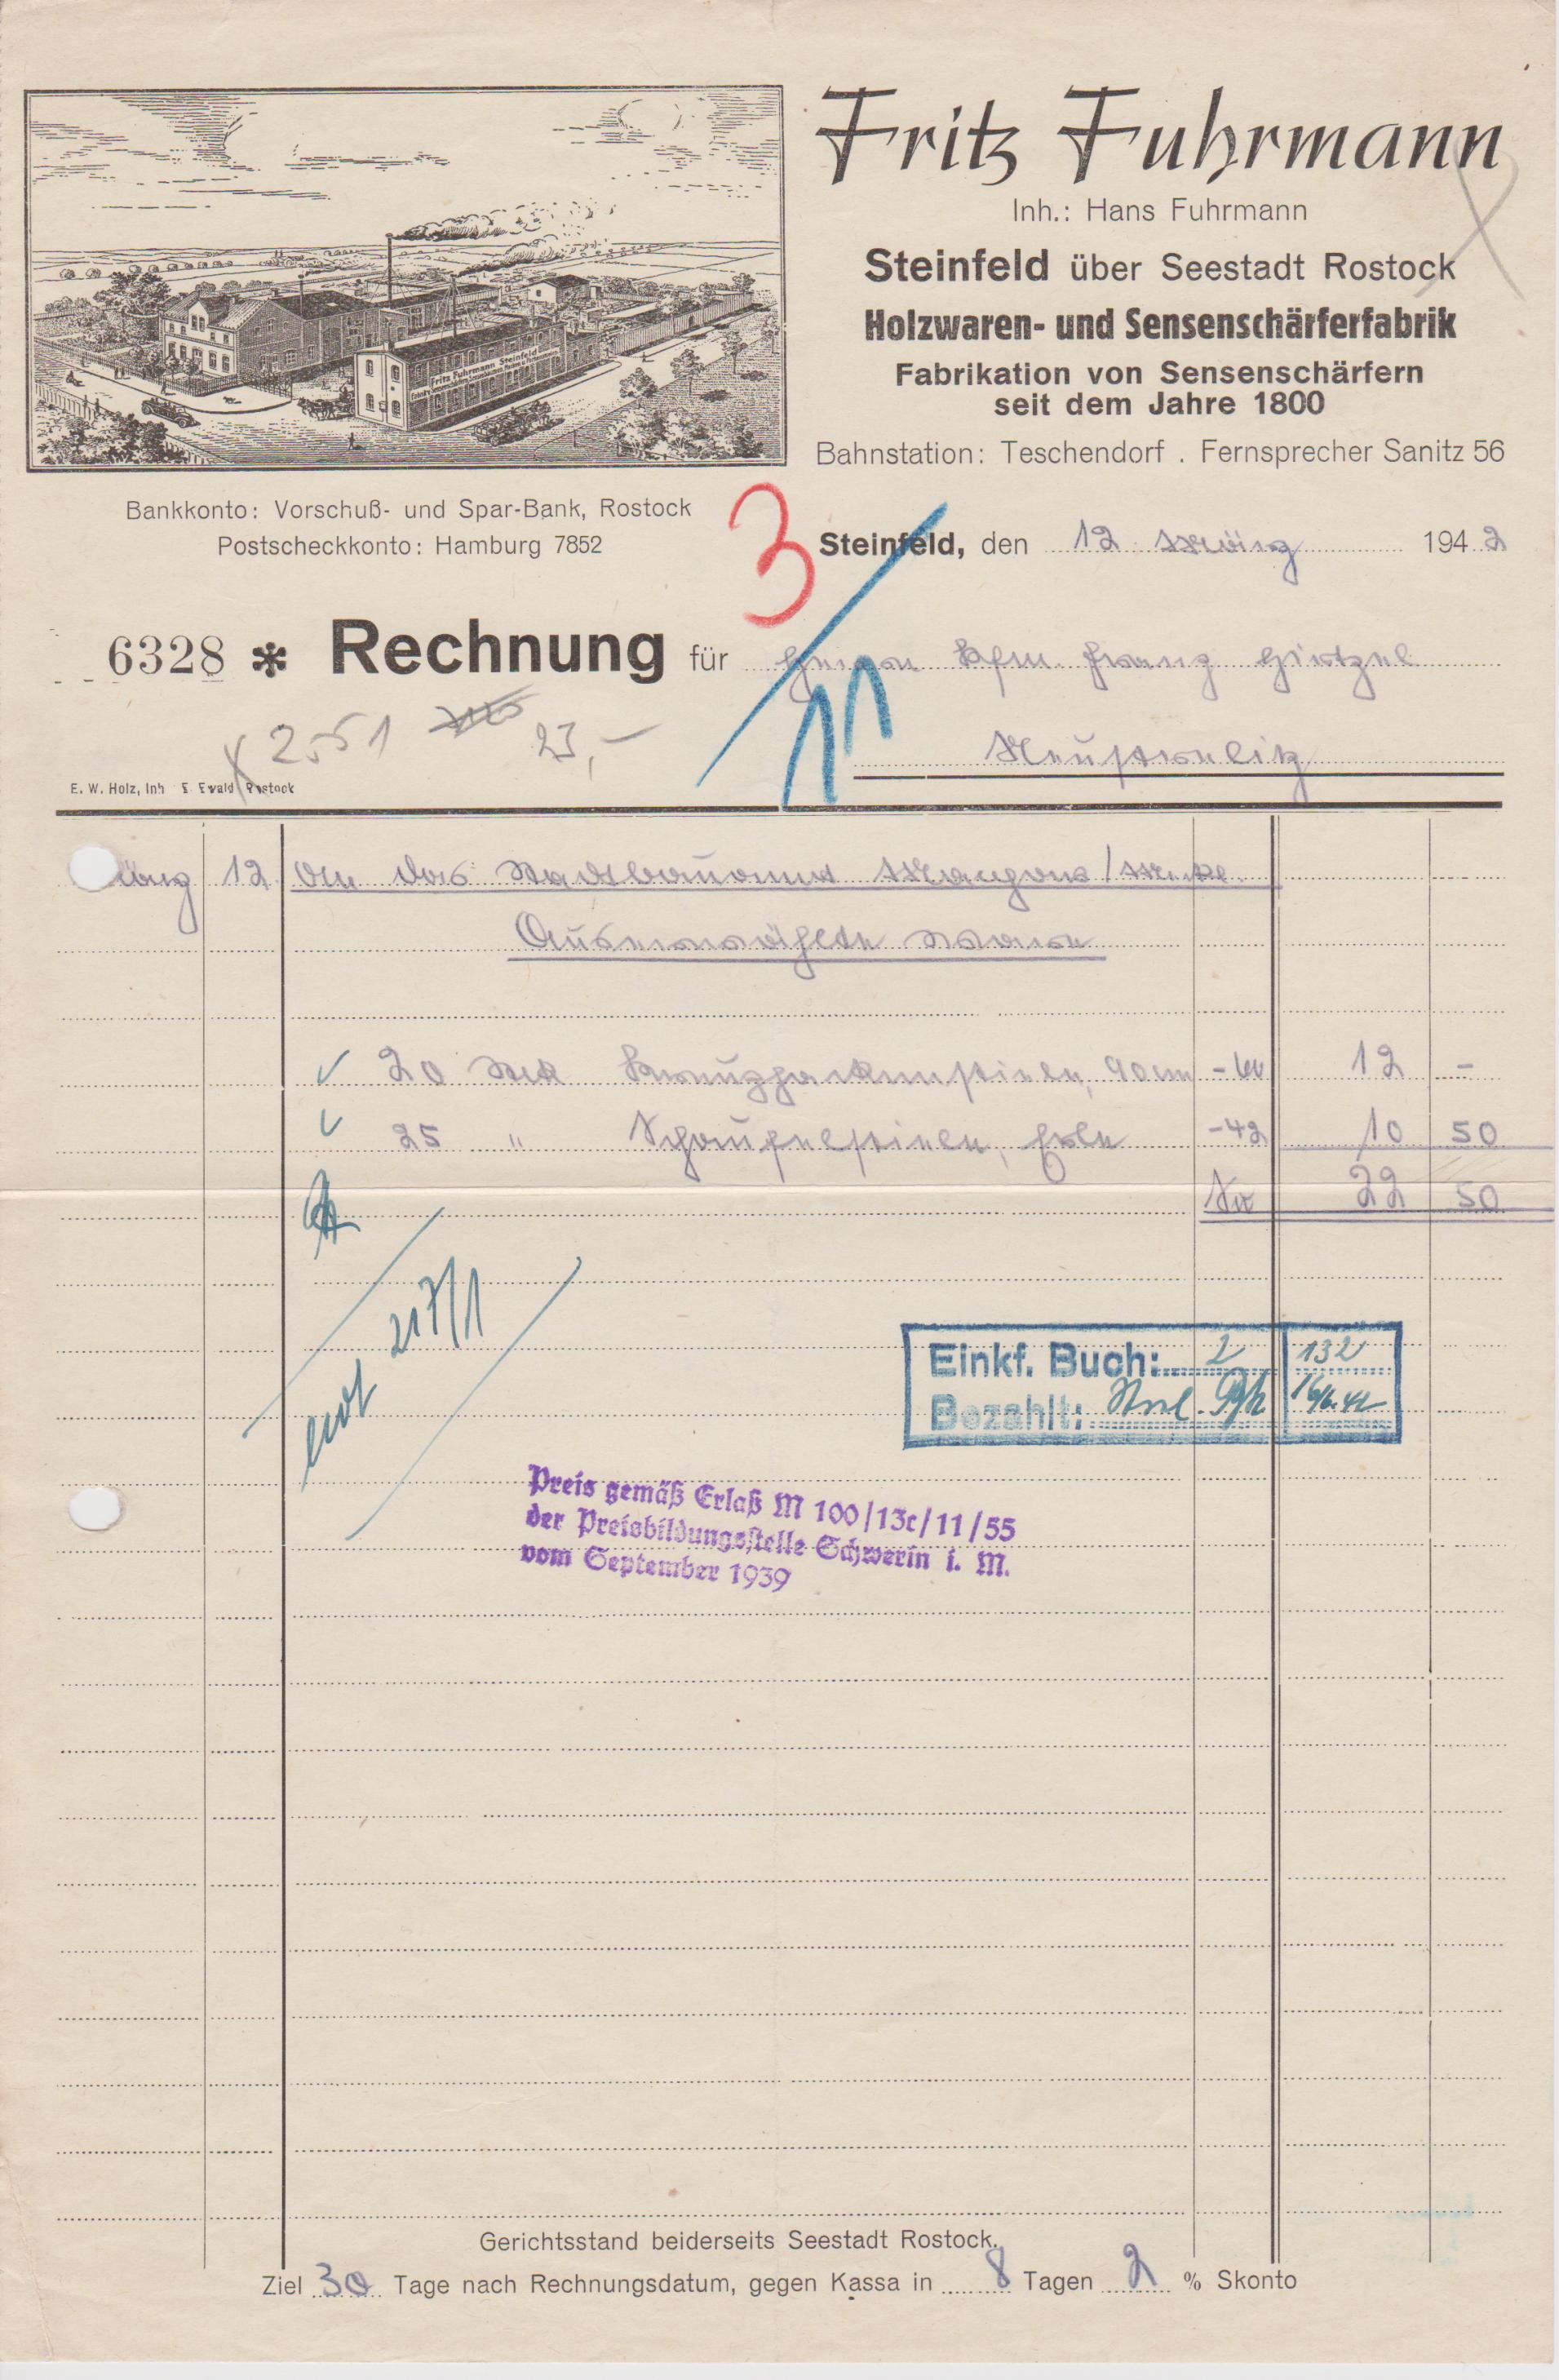 Fritz Fuhrmann
Inh.: Hans Fuhrmann
Steinfeld über Seestadt Rostock
Holzwaren- und Sensenschärferfabrik
Fabrikation von Sensenschärfern
seit dem Jahre 1800
Bahnstation: Teschendorf . Fernsprecher Sanitz 56
Fritz Fuhrmann Steinfeld
Bankkonto: Vorschuß- und Spar-Bank, Rostock
Postscheckkonto: Hamburg 7852
3
Steinfeld, den 12 März 1942
6328 * Rechnung für Herrn Kfm. Franz Hirtzel
Neustrelitz
11
2551 23,-
E. W. Holz, Inh E. Ewald Rostock
März 12 An das Stadtbauamt
Auserwählte Waren
20 Stck Kreuzhackenstiele, 90 cm -60 12 -
25 " Schaufelstiele, Erle -42 10 50
22 50
217/1
Einkf. Buch: 2 132
Bezahlt:
Preis gemäß Erlaß M 100/13c/11/55
der Preisbildungsstelle Schwerin i. M.
vom September 1939
Gerichtsstand beiderseits Seestadt Rostock.
Ziel 30 Tage nach Rechnungsdatum, gegen Kassa in 8 Tagen 2 % Skonto